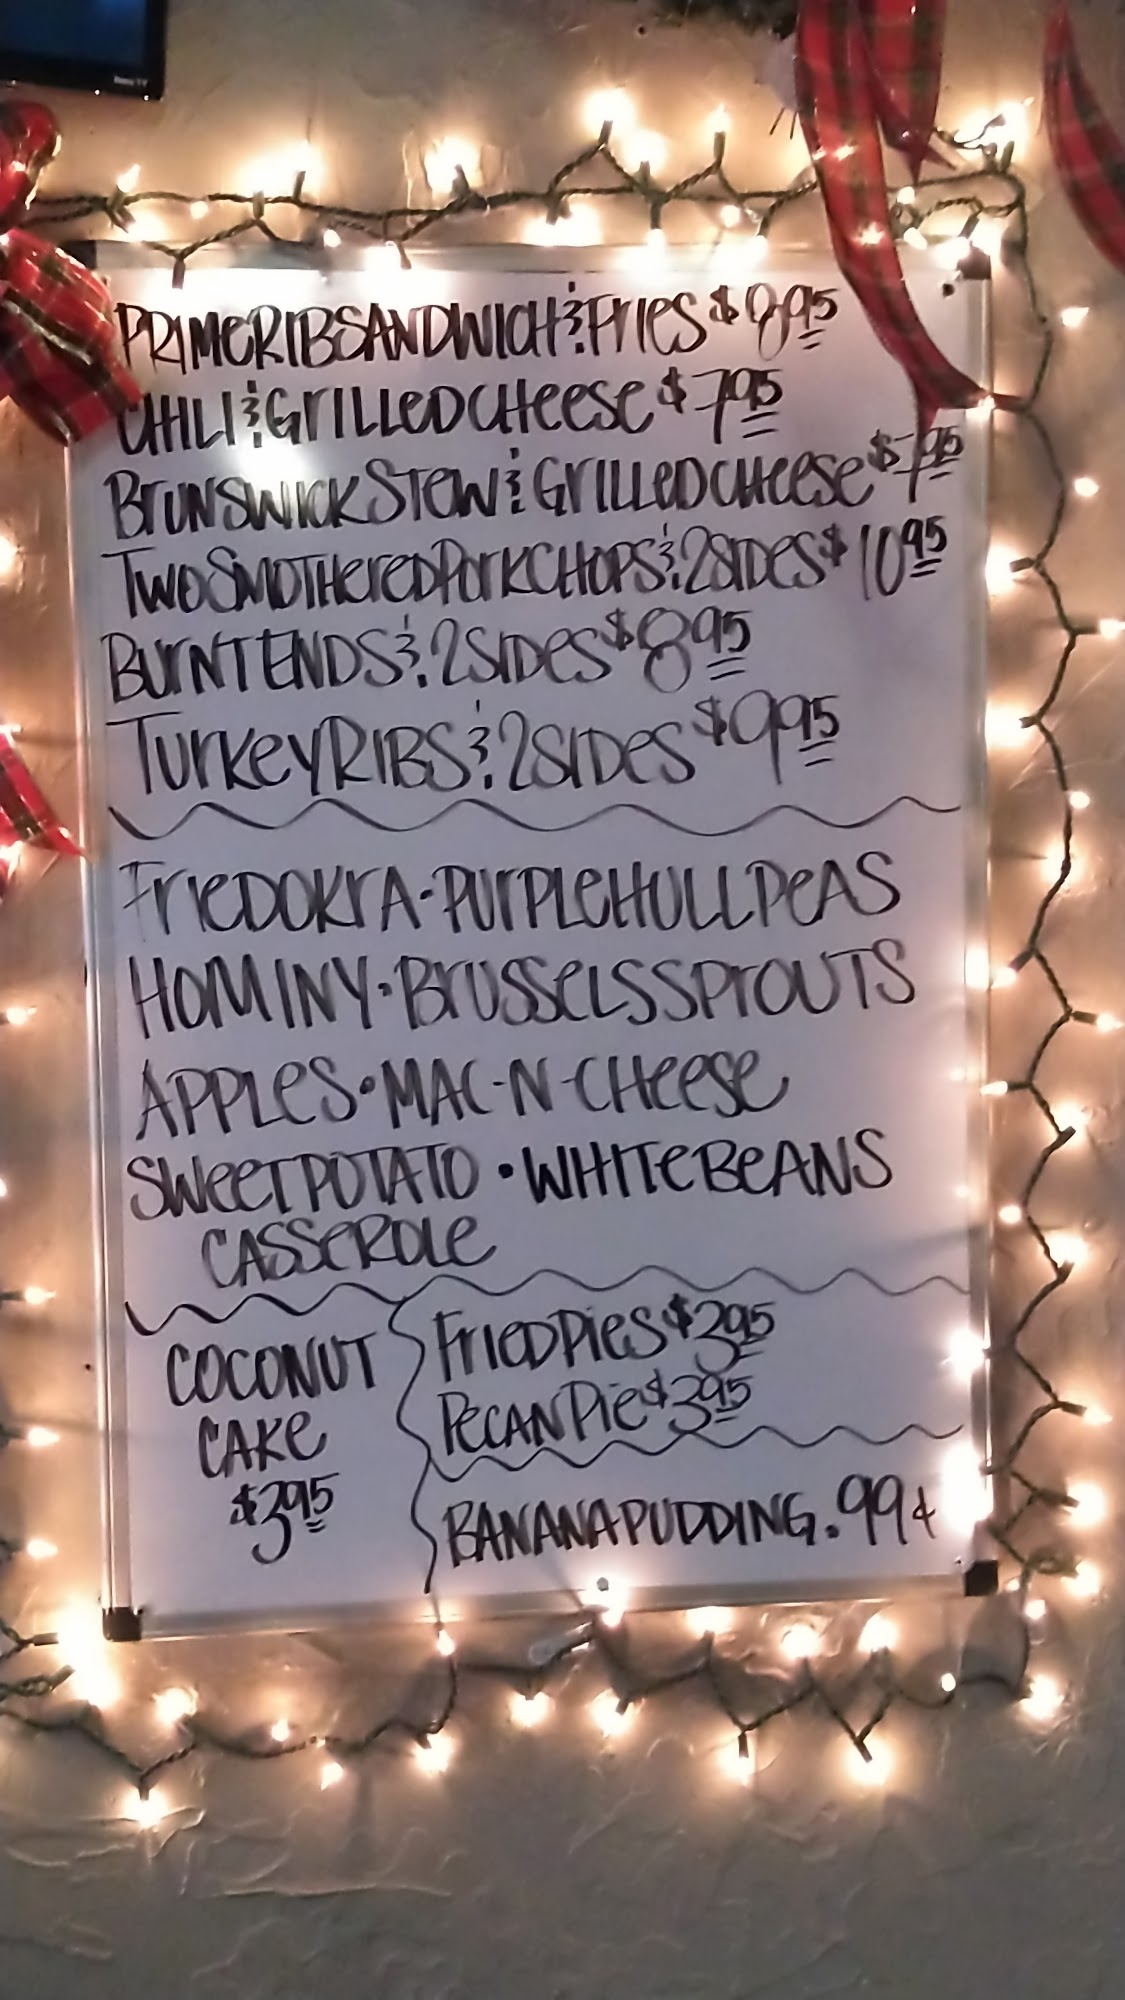 Roku TV
PRIME RIB SANDWICH & FRIES $8.95
CHILI & GRILLED CHEESE $7.95
BRUNSWICK STEW & GRILLED CHEESE $7.95
TWO SMOTHERED PORK CHOPS & 2 SIDES $10.95
BURNT ENDS & 2 SIDES $8.95
TURKEY RIBS & 2 SIDES $9.95
FRIED OKRA • PURPLE HULL PEAS
HOMINY • BRUSSELS SPROUTS
APPLES • MAC-N-CHEESE
SWEET POTATO • WHITE BEANS
CASSEROLE
COCONUT
CAKE
$3.95
FRIED PIES $3.95
PECAN PIE $3.95
BANANA PUDDING .99¢